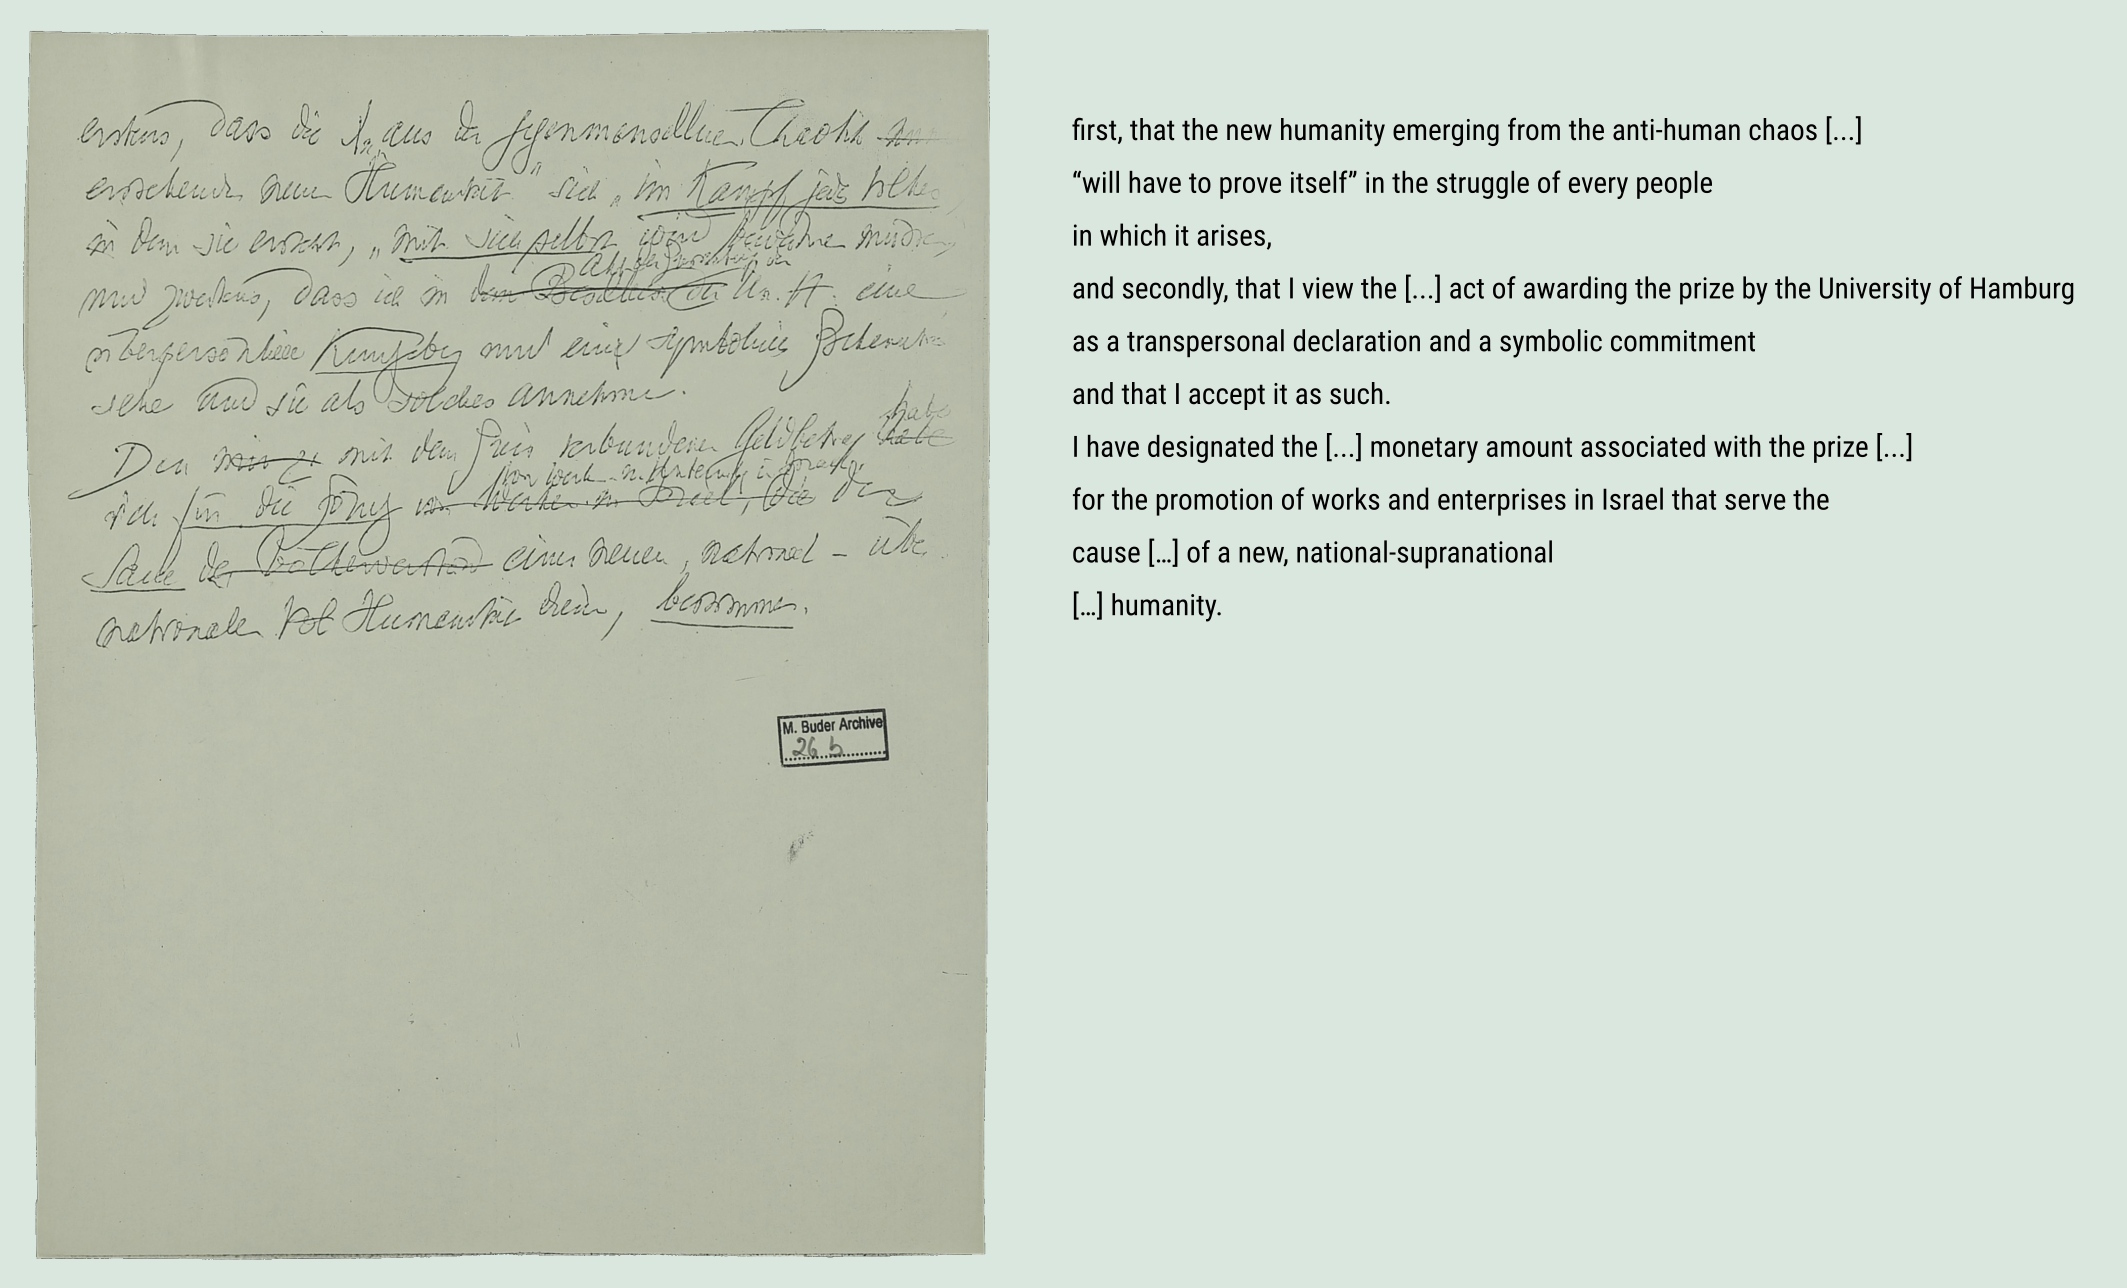 erstens, dass die aus der gegenmenschlichen Chaotik
erstehende neue Humanität sich „im Kampf jedes Volkes,
in dem sie ersteht, „mit sich selbst wird bewähren müssen,
Akt der der
und zweitens, dass ich in dem Beschluss der Un. H. eine
überpersönliche Kundgebung und eine symbolische
sehe und sie als solches annehme.
habe
Den mir zu mit dem Preis verbundenen Geldbetrag habe
von Werk u. in
ich für die von Werken in Israel, die der
Sache der einer neuen, national - über
nationalen Humanität dienen, bestimmt.
M. Buder Archive
26 b
first, that the new humanity emerging from the anti-human chaos [...]
“will have to prove itself” in the struggle of every people
in which it arises,
and secondly, that I view the [...] act of awarding the prize by the University of Hamburg
as a transpersonal declaration and a symbolic commitment
and that I accept it as such.
I have designated the [...] monetary amount associated with the prize [...]
for the promotion of works and enterprises in Israel that serve the
cause [...] of a new, national-supranational
[...] humanity.